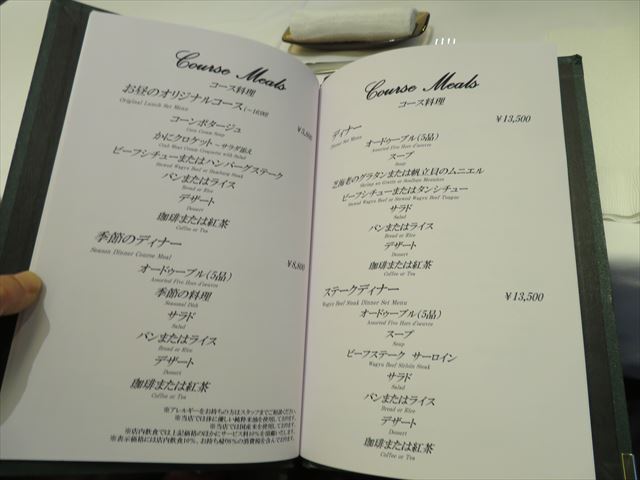 Course Meals
コース料理
お昼のオリジナルコース(~16:00)
Original Lunch Set Menu
コーンポタージュ
Corn Cream Soup
かにクロケット ~サラダ添え
Crab Meat Cream Croquette with Salad
ビーフシチューまたはハンバーグステーク
Stewed Wagyu Beef or Hamburg Steak
パンまたはライス
Bread or Rice
デザート
Dessert
珈琲または紅茶
Coffee or Tea
季節のディナー
Season Dinner Course Meal
¥8,800
オードゥーブル(5品)
Assorted Five Hors d'oeuvre
季節の料理
Seasonal Dish
サラダ
Salad
パンまたはライス
Bread or Rice
デザート
Dessert
珈琲または紅茶
Coffee or Tea
※アレルギーをお持ちの方はスタッフまでご相談ください。
※当店では体に優しい純粋米油を使用しております。
※当店では国産米を使用しております。
※店内飲食では上記価格のほかにサービス料10%を頂戴いたします。
※表示価格には店内飲食10%、お持ち帰り8%の消費税を含んでおります。
Course Meals
コース料理
ディナー
Dinner Set Menu
¥13,500
オードゥーブル(5品)
Assorted Five Hors d'oeuvre
スープ
Soup
芝海老のグラタンまたは帆立貝のムニエル
Shrimp au Gratin or Scallops Meunière
ビーフシチューまたはタンシチュー
Stewed Wagyu Beef or Stewed Wagyu Beef Tongue
サラダ
Salad
パンまたはライス
Bread or Rice
デザート
Dessert
珈琲または紅茶
Coffee or Tea
ステークディナー
Wagyu Beef Steak Dinner Set Menu
¥13,500
オードゥーブル(5品)
Assorted Five Hors d'oeuvre
スープ
Soup
ビーフステーク サーロイン
Wagyu Beef Sirloin Steak
サラダ
Salad
パンまたはライス
Bread or Rice
デザート
Dessert
珈琲または紅茶
Coffee or Tea